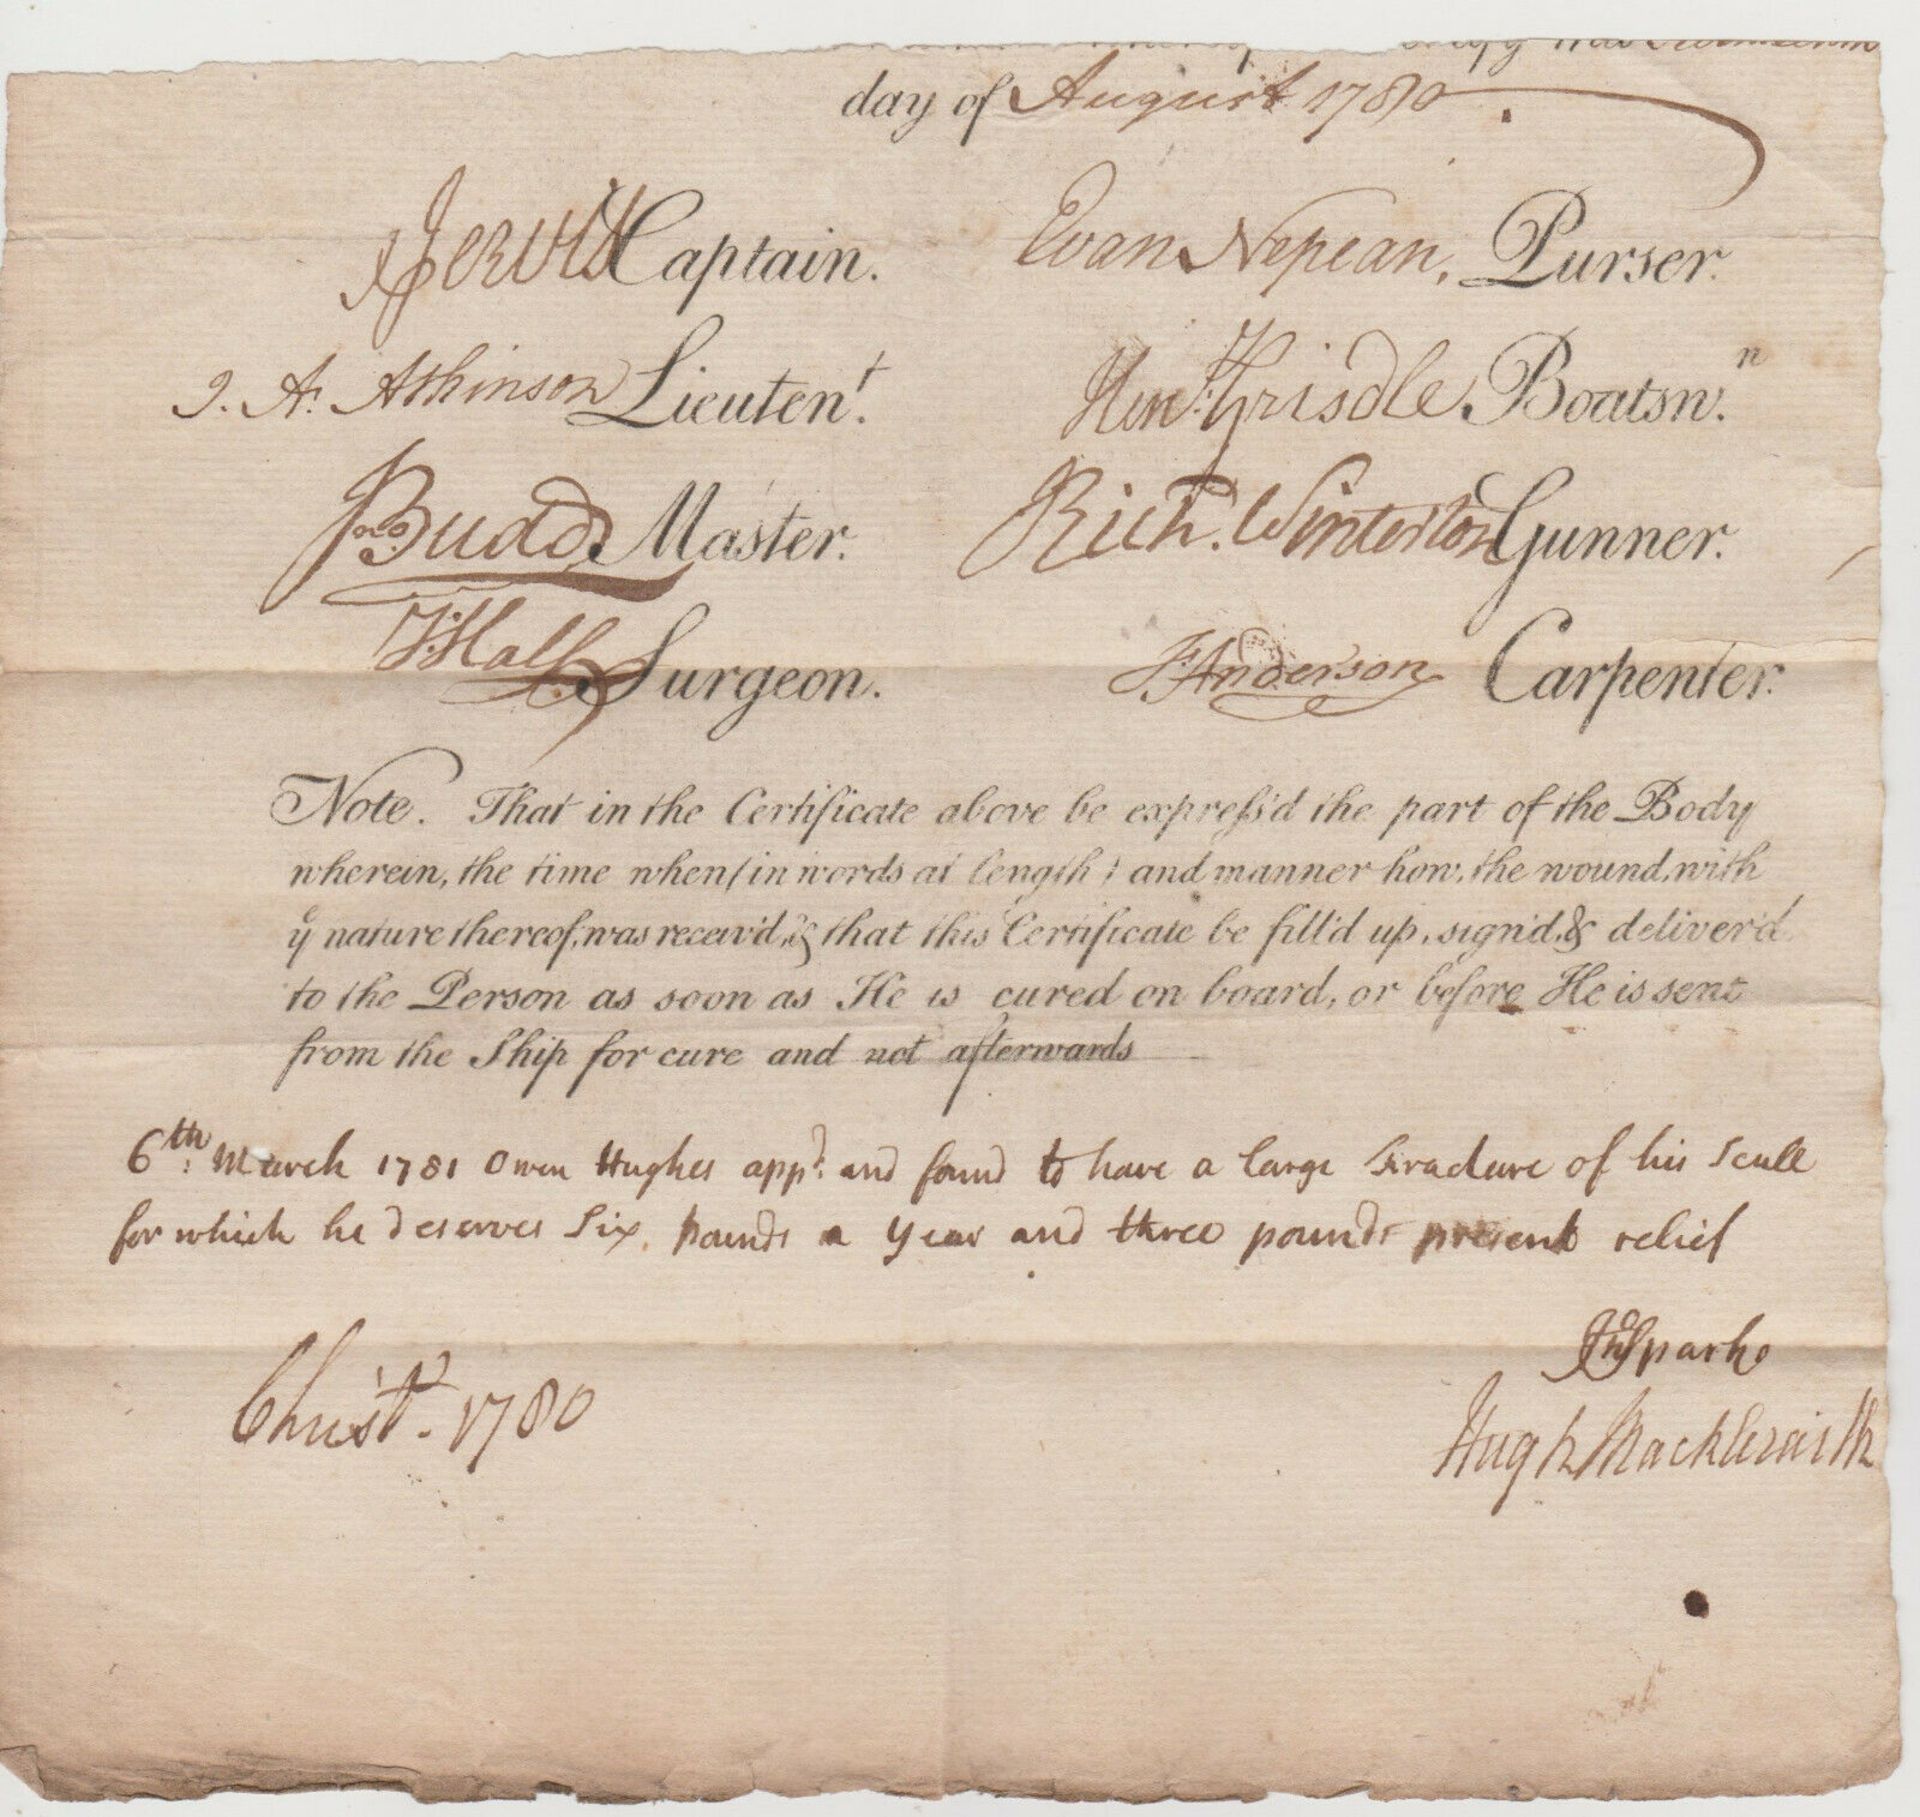 day of August 1780
Jervis Captain. Evan Nepean, Purser.
J. A. Atkinson Lieuten.t Hen: Grisdle Boatsw.n
Budd Master. Rich. Winterton Gunner.
T: Hall Surgeon. J: Anderson Carpenter.
Note. That in the Certificate above be express'd the part of the Body
wherein, the time when (in words at length) and manner how, the wound, with
ye nature thereof, was receiv'd, & that this Certificate be fill'd up, sign'd, & deliver'd
to the Person as soon as He is cured on board, or before He is sent
from the Ship for cure and not afterwards
6th: March 1781 Owen Hughes appd: and found to have a large fracture of his Scull
for which he deserves Six pounds a year and three pounds present relief
Jno Spark
Christ. 1780
Hugh